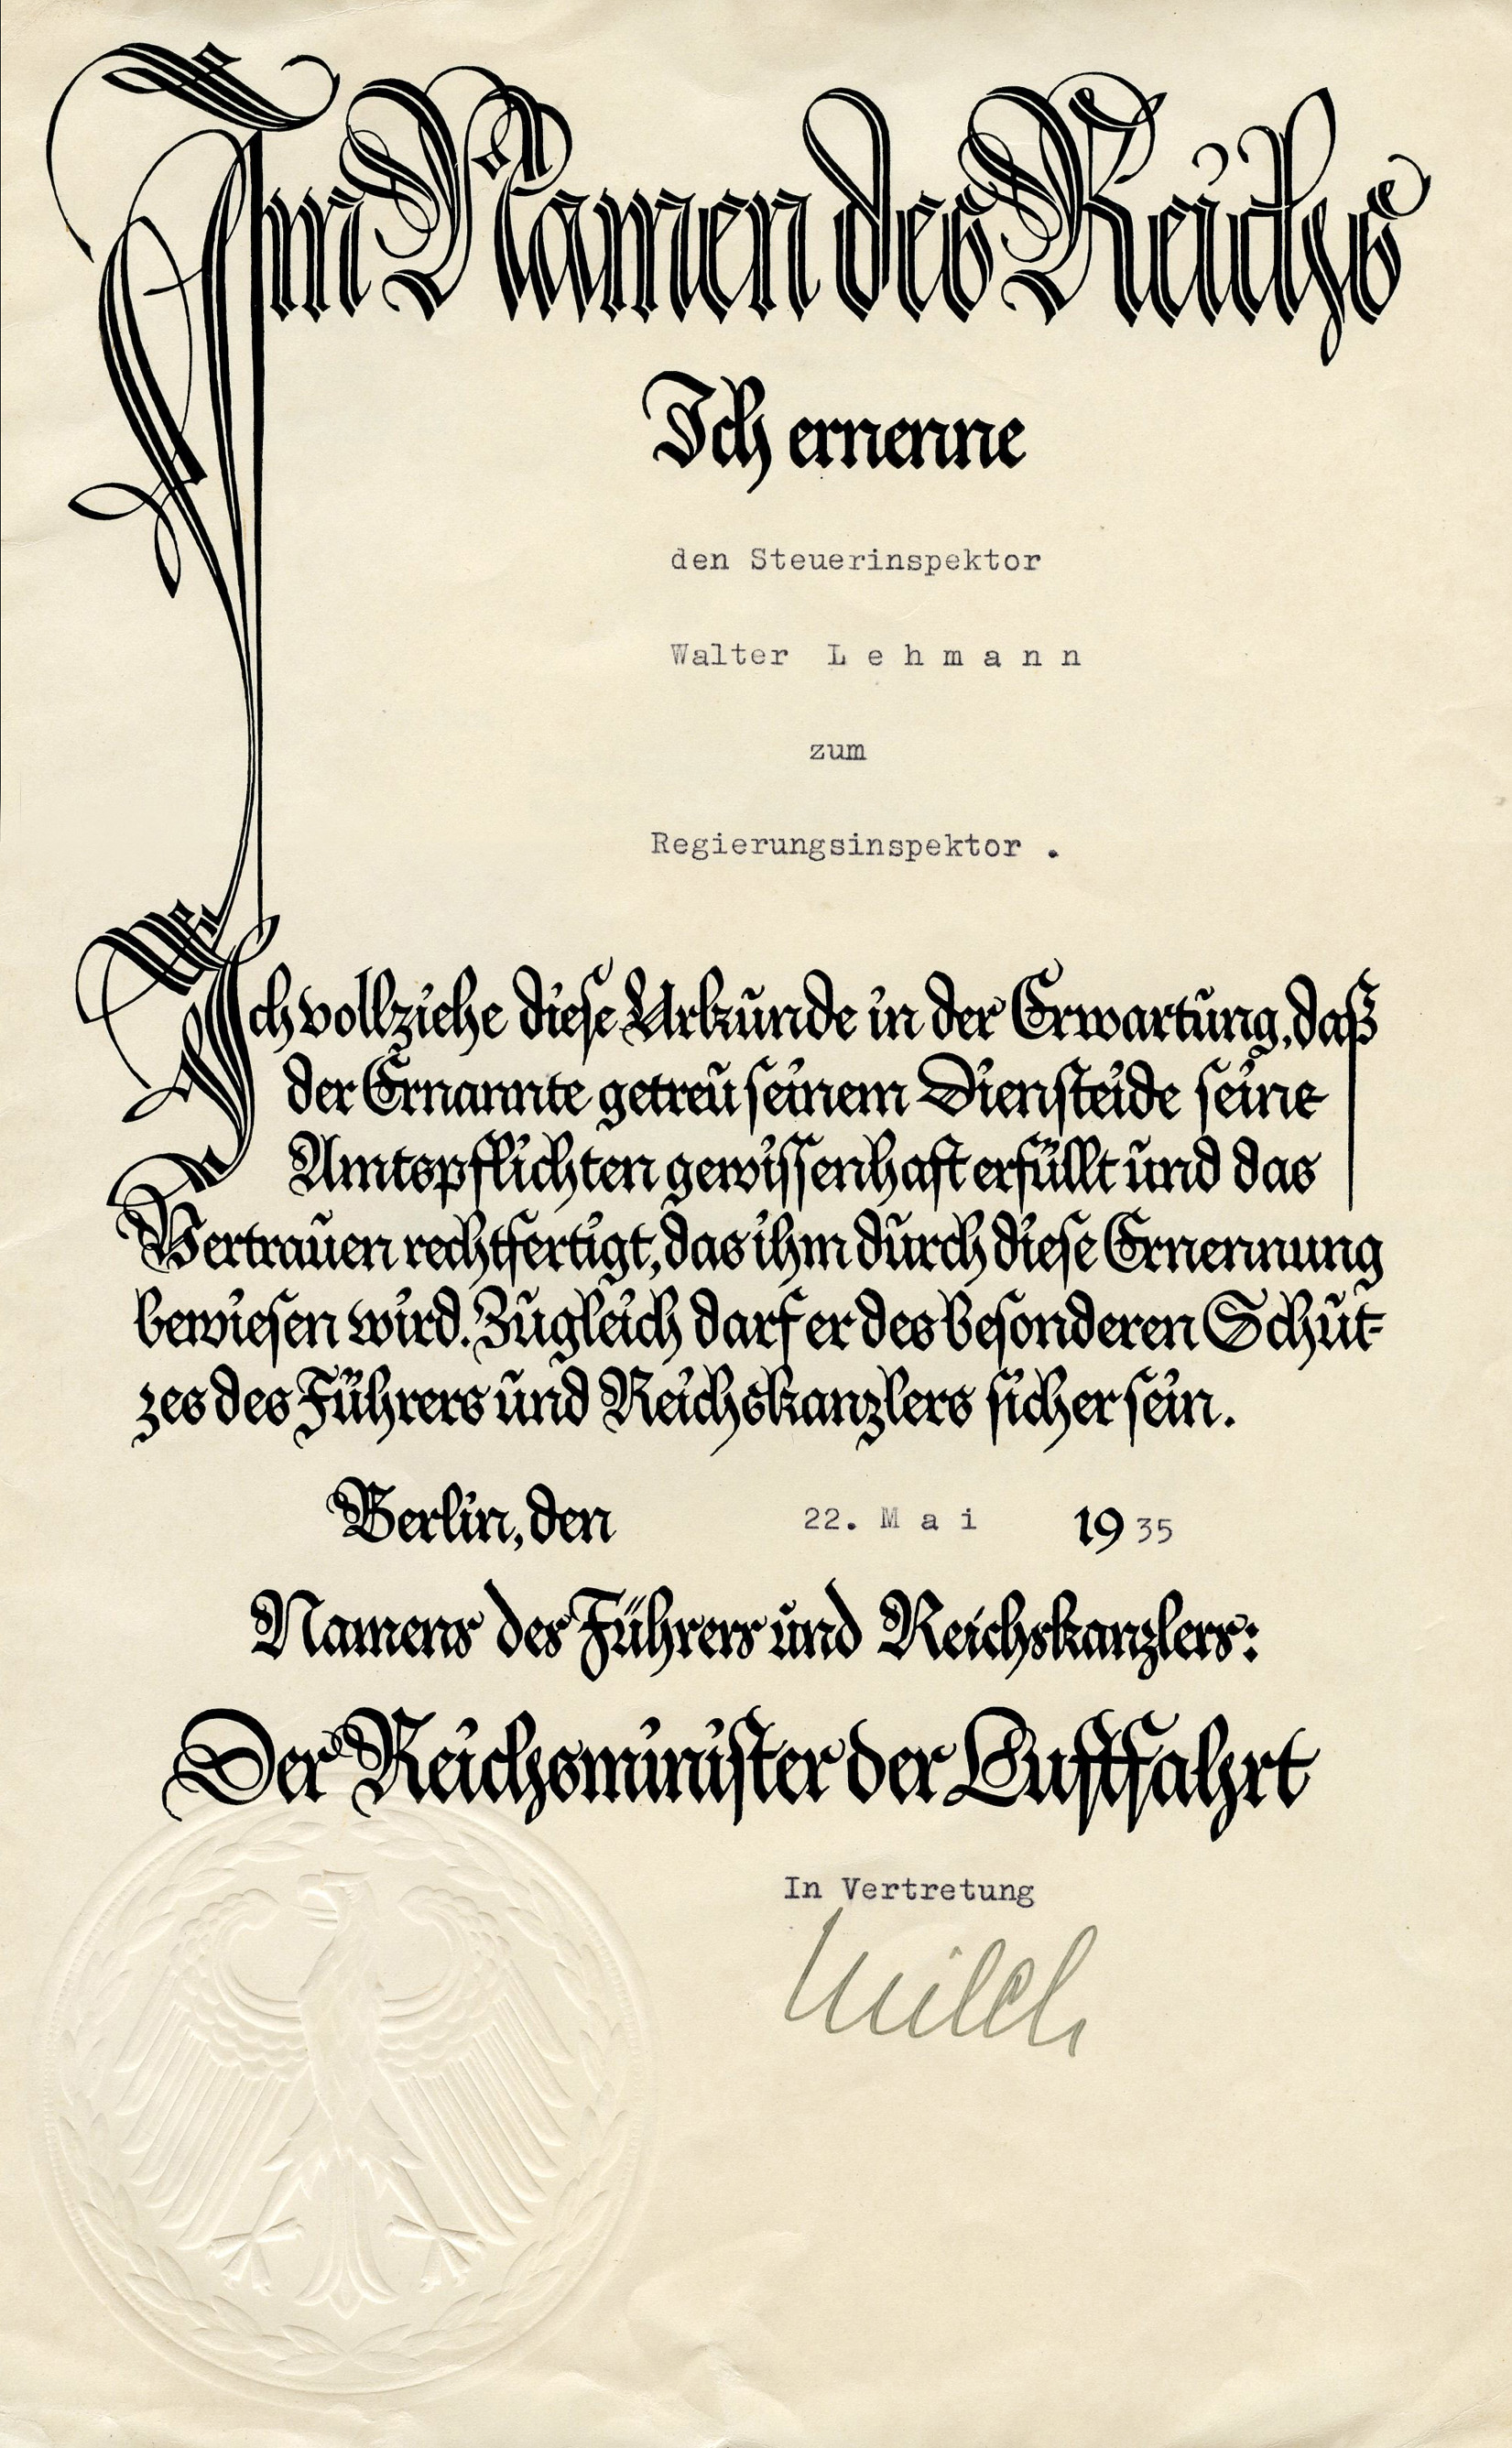 Im Namen des Reichs
Ich ernenne
den Steuerinspektor
Walter L e h m a n n
zum
Regierungsinspektor .
Ich vollziehe diese Urkunde in der Erwartung, daß
der Ernannte getreu seinem Diensteide seine
Amtspflichten gewissenhaft erfüllt und das
Vertrauen rechtfertigt, das ihm durch diese Ernennung
bewiesen wird. Zugleich darf er des besonderen Schut-
zes des Führers und Reichskanzlers sicher sein.
Berlin, den 22. M a i 1935
Namens des Führers und Reichskanzlers:
Der Reichsminister der Luftfahrt
In Vertretung
Milch